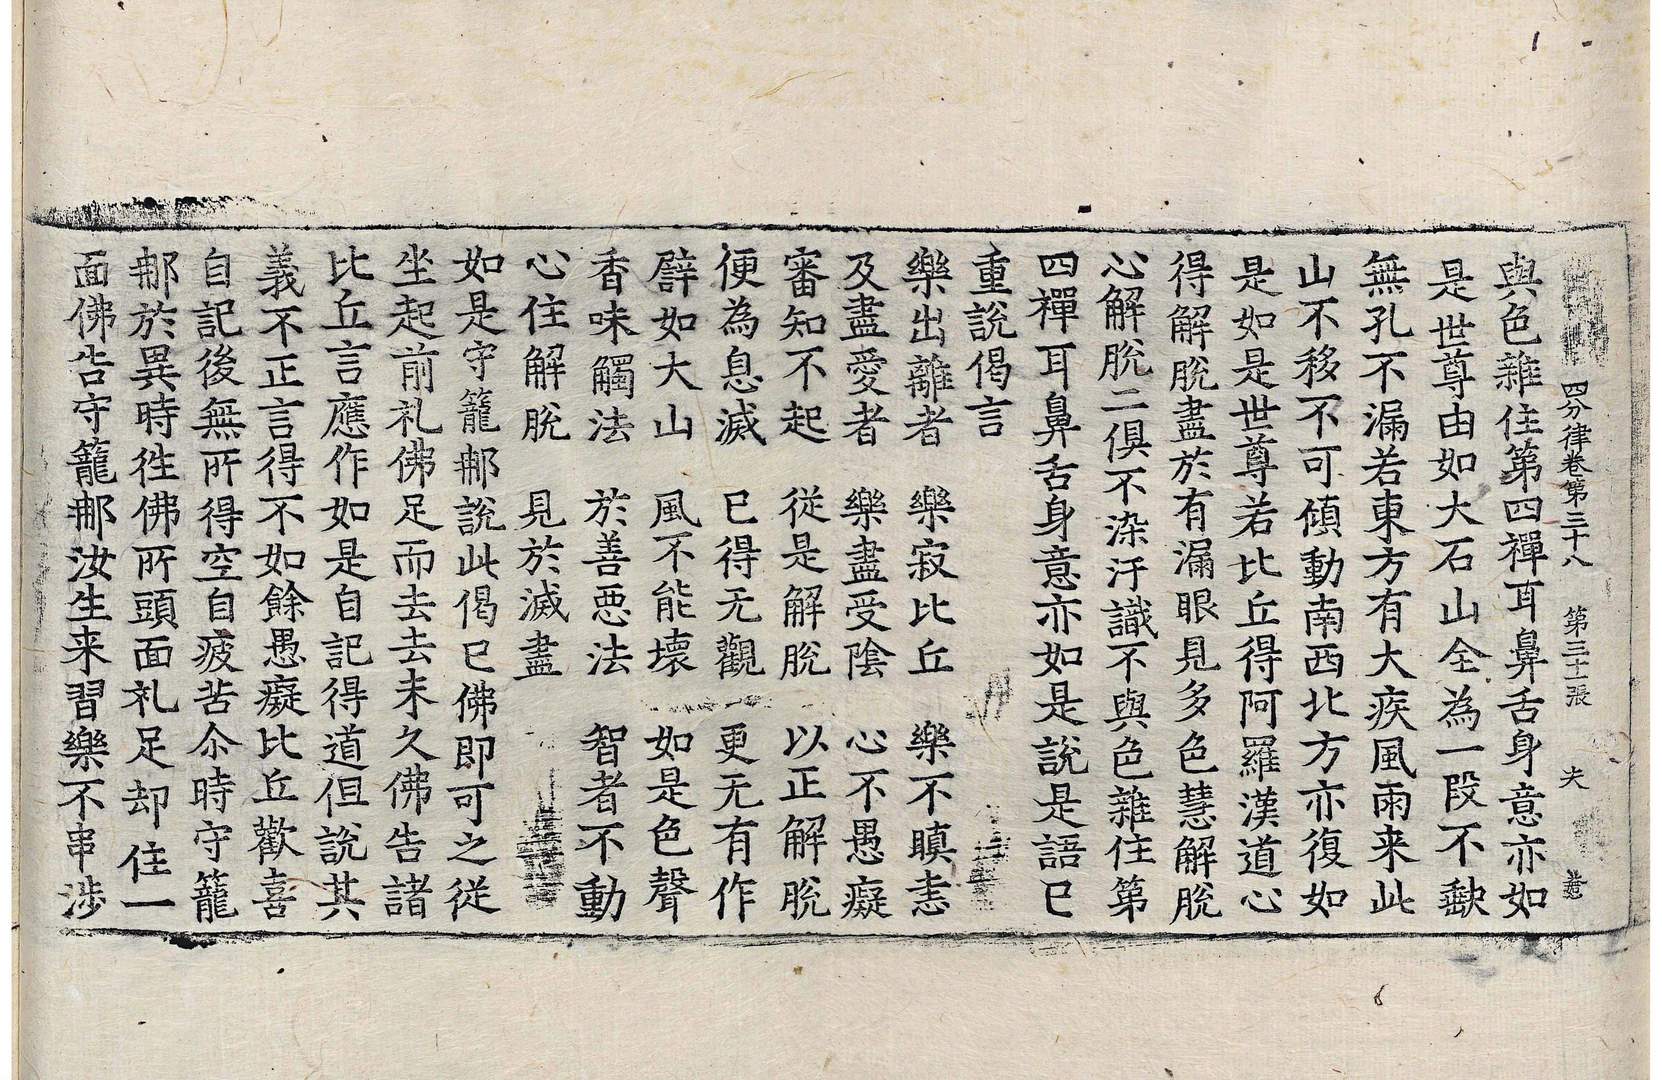 四分律卷第三十八 第三十一張 夫
與色雜住第四禪耳鼻舌身意亦如
是世尊由如大石山全為一段不𡙇
無孔不漏若東方有大疾風雨来此
山不移不可傾動南西北方亦復如
是如是世尊若比丘得阿羅漢道心
得解脫盡於有漏眼見多色慧解脫
心解脫二俱不染汙識不與色雜住第
四禪耳鼻舌身意亦如是說是語已
重說偈言
樂出離者 樂寂比丘 樂不瞋恚
及盡愛者 樂盡受陰 心不愚癡
審知不起 從是解脫 以正解脫
便為息滅 已得无觀 更无有作
譬如大山 風不能壞 如是色聲
香味觸法 於善惡法 智者不動
心住解脫 見於滅盡
如是守籠𨚗說此偈已佛即可之從
坐起前礼佛足而去去未久佛告諸
比丘言應作如是自記得道但說其
義不正言得不如餘愚癡比丘歡喜
自記後無所得空自疲苦尒時守籠
𨚗於異時徃佛所頭面礼足却住一
面佛告守籠𨚗汝生来習樂不串涉